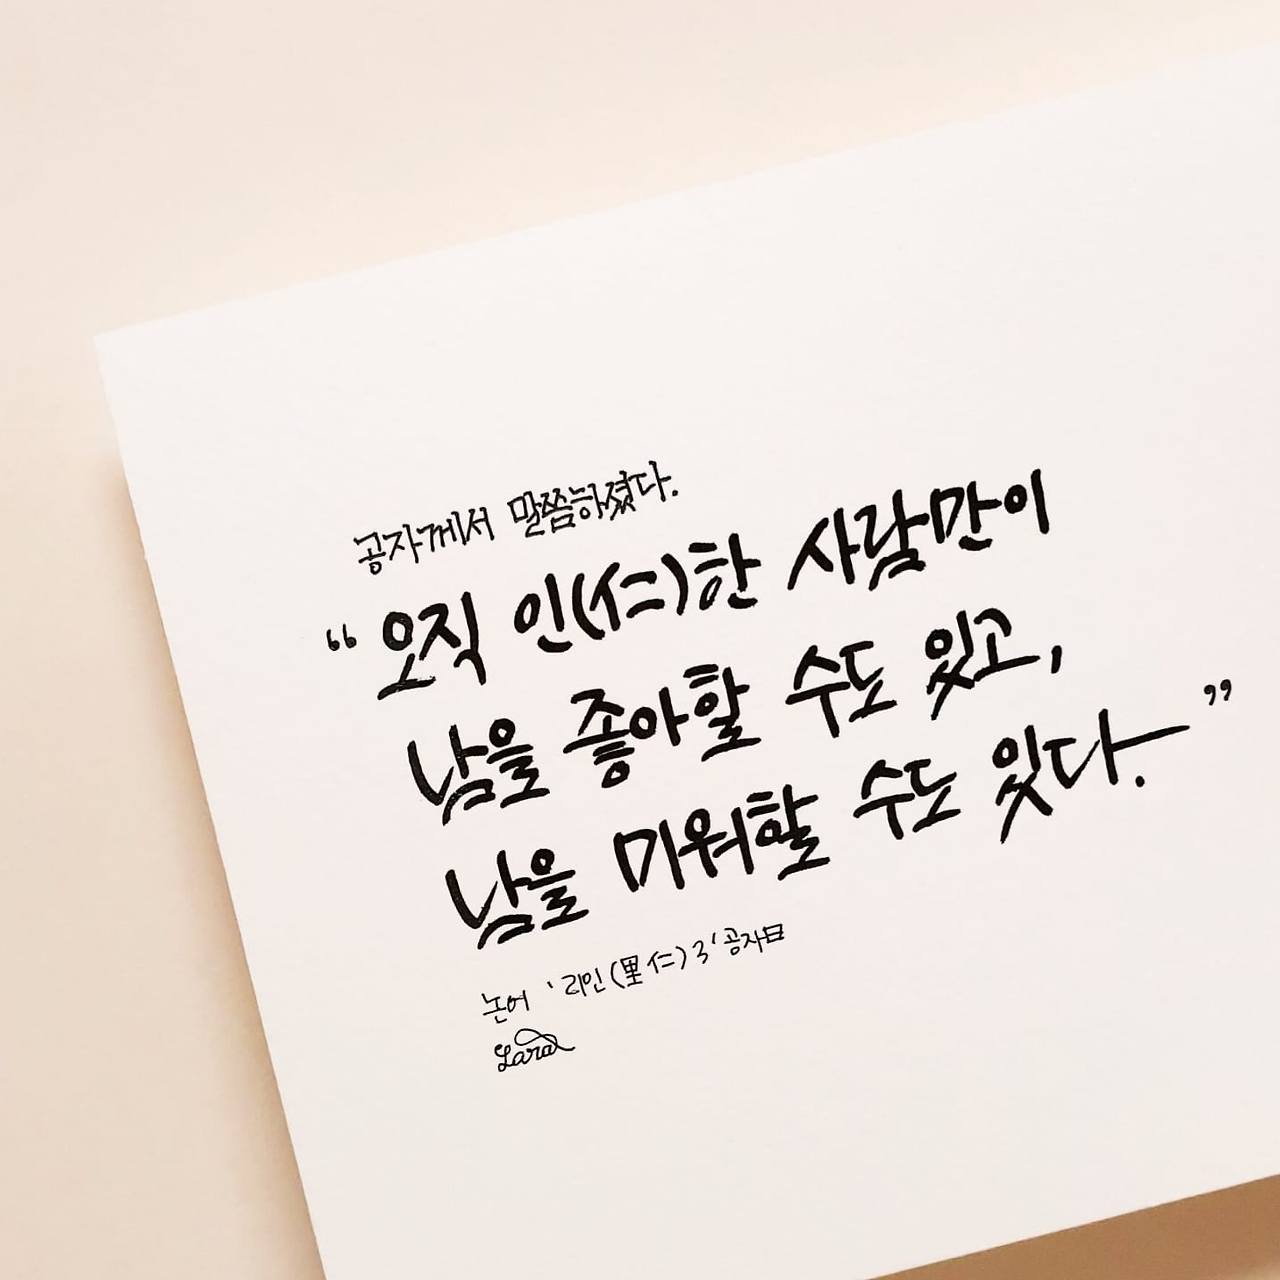 공자께서 말씀하셨다.
“오직 인(仁)한 사람만이
남을 좋아할 수도 있고,
남을 미워할 수도 있다.”
논어 '리인(里仁) 3' 공자曰
Lara